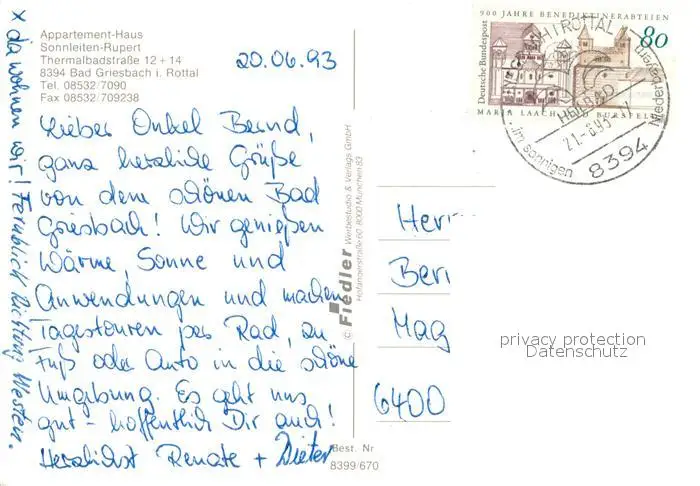 Appartement-Haus
Sonnleiten-Rupert
Thermalbadstraße 12 + 14
8394 Bad Griesbach i. Rottal
Tel. 08532/7090
Fax 08532/709238
20.06.93
Lieber Onkel Bernd,
ganz herzliche Grüße
von dem schönen Bad
Griesbach! Wir genießen
Wärme, Sonne und
Anwendungen und machen
Tagestouren per Rad, zu
Fuß oder Auto in die schöne
Umgebung. Es geht uns
gut - hoffentlich Dir auch!
Herzlichst Renate + Dieter
x da wohnen wir! Fernblick Richtung Westen.
© Fiedler Werbestudio & Verlags GmbH
Hofangerstraße 60 8000 München 83
Best. Nr
8399/670
900 JAHRE BENEDIKTINERABTEIEN
80
Deutsche Bundespost
MARIA LAACH
BURSFELDE
ROTTAL
21.-6.93
8394
im sonnigen
Niederbayern
Herr
Ber
Mag
6400
privacy protection
Datenschutz